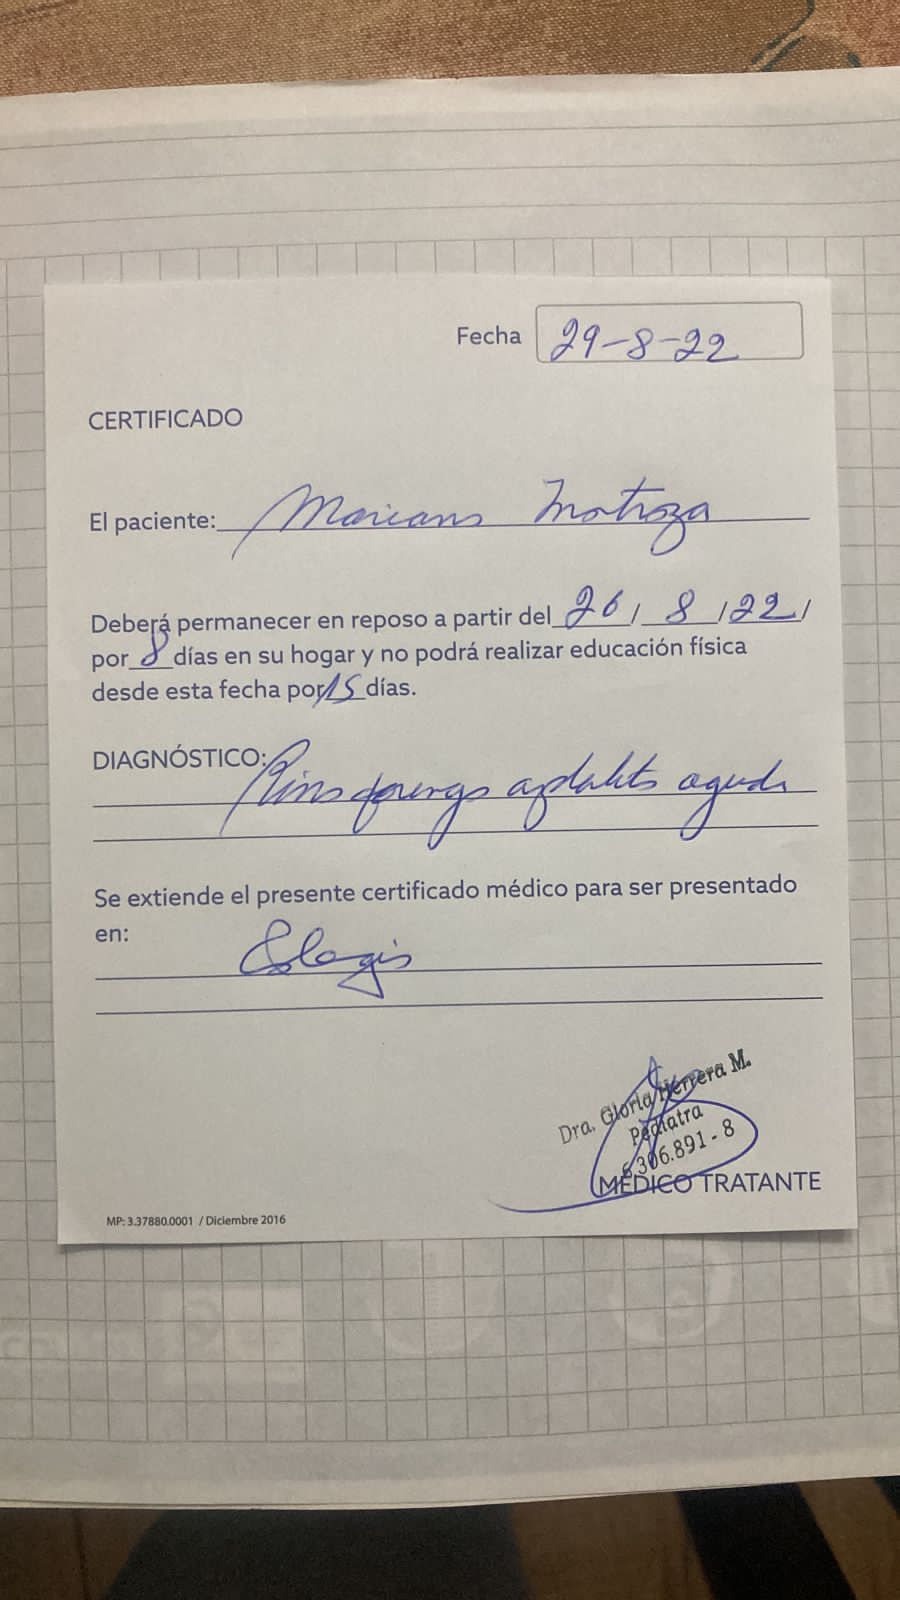 Fecha 29-8-22
CERTIFICADO
El paciente: Mariano
Deberá permanecer en reposo a partir del 26 / 8 / 22 /
por 8 días en su hogar y no podrá realizar educación física
desde esta fecha por 15 días.
DIAGNÓSTICO:
aguda
Se extiende el presente certificado médico para ser presentado
en:
Colegio
Dra. Gloria Herrera M.
Pediatra
6.306.891 - 8
MÉDICO TRATANTE
MP: 3.37880.0001 / Diciembre 2016